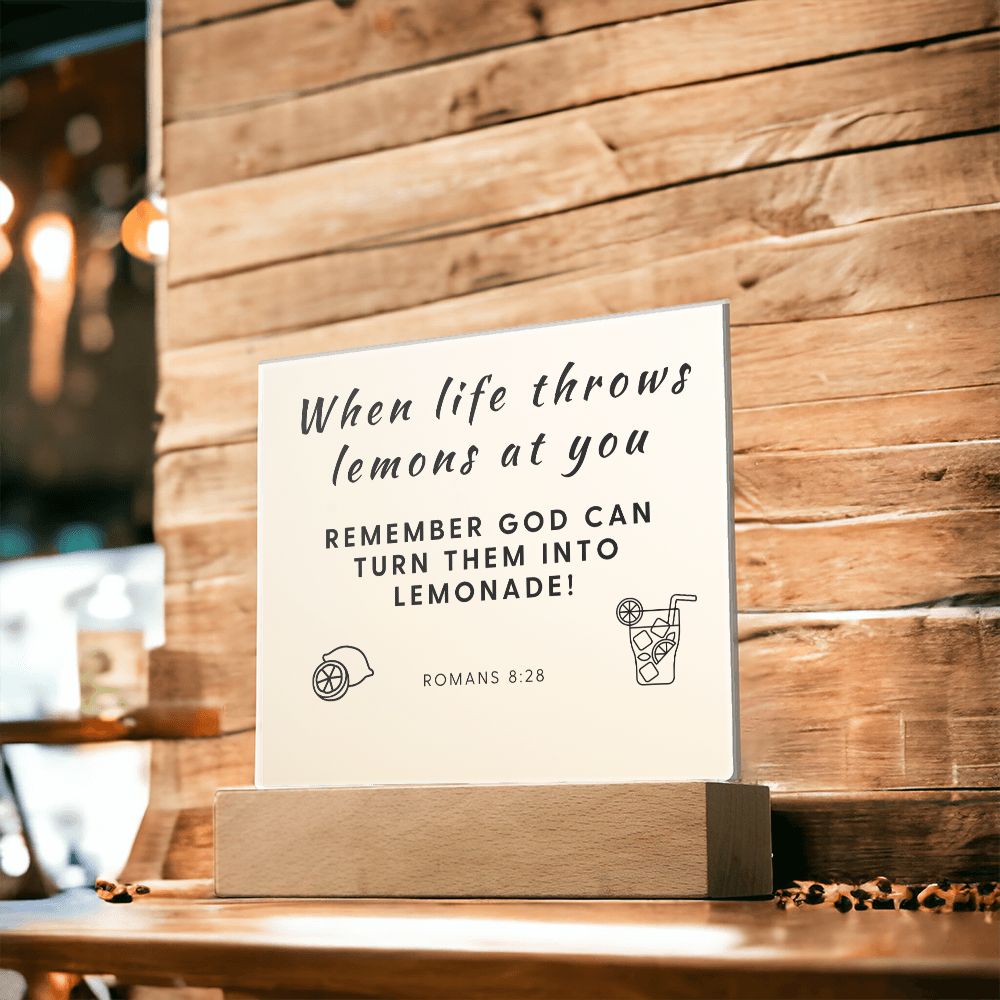 When life throws
lemons at you
REMEMBER GOD CAN
TURN THEM INTO
LEMONADE!
ROMANS 8:28